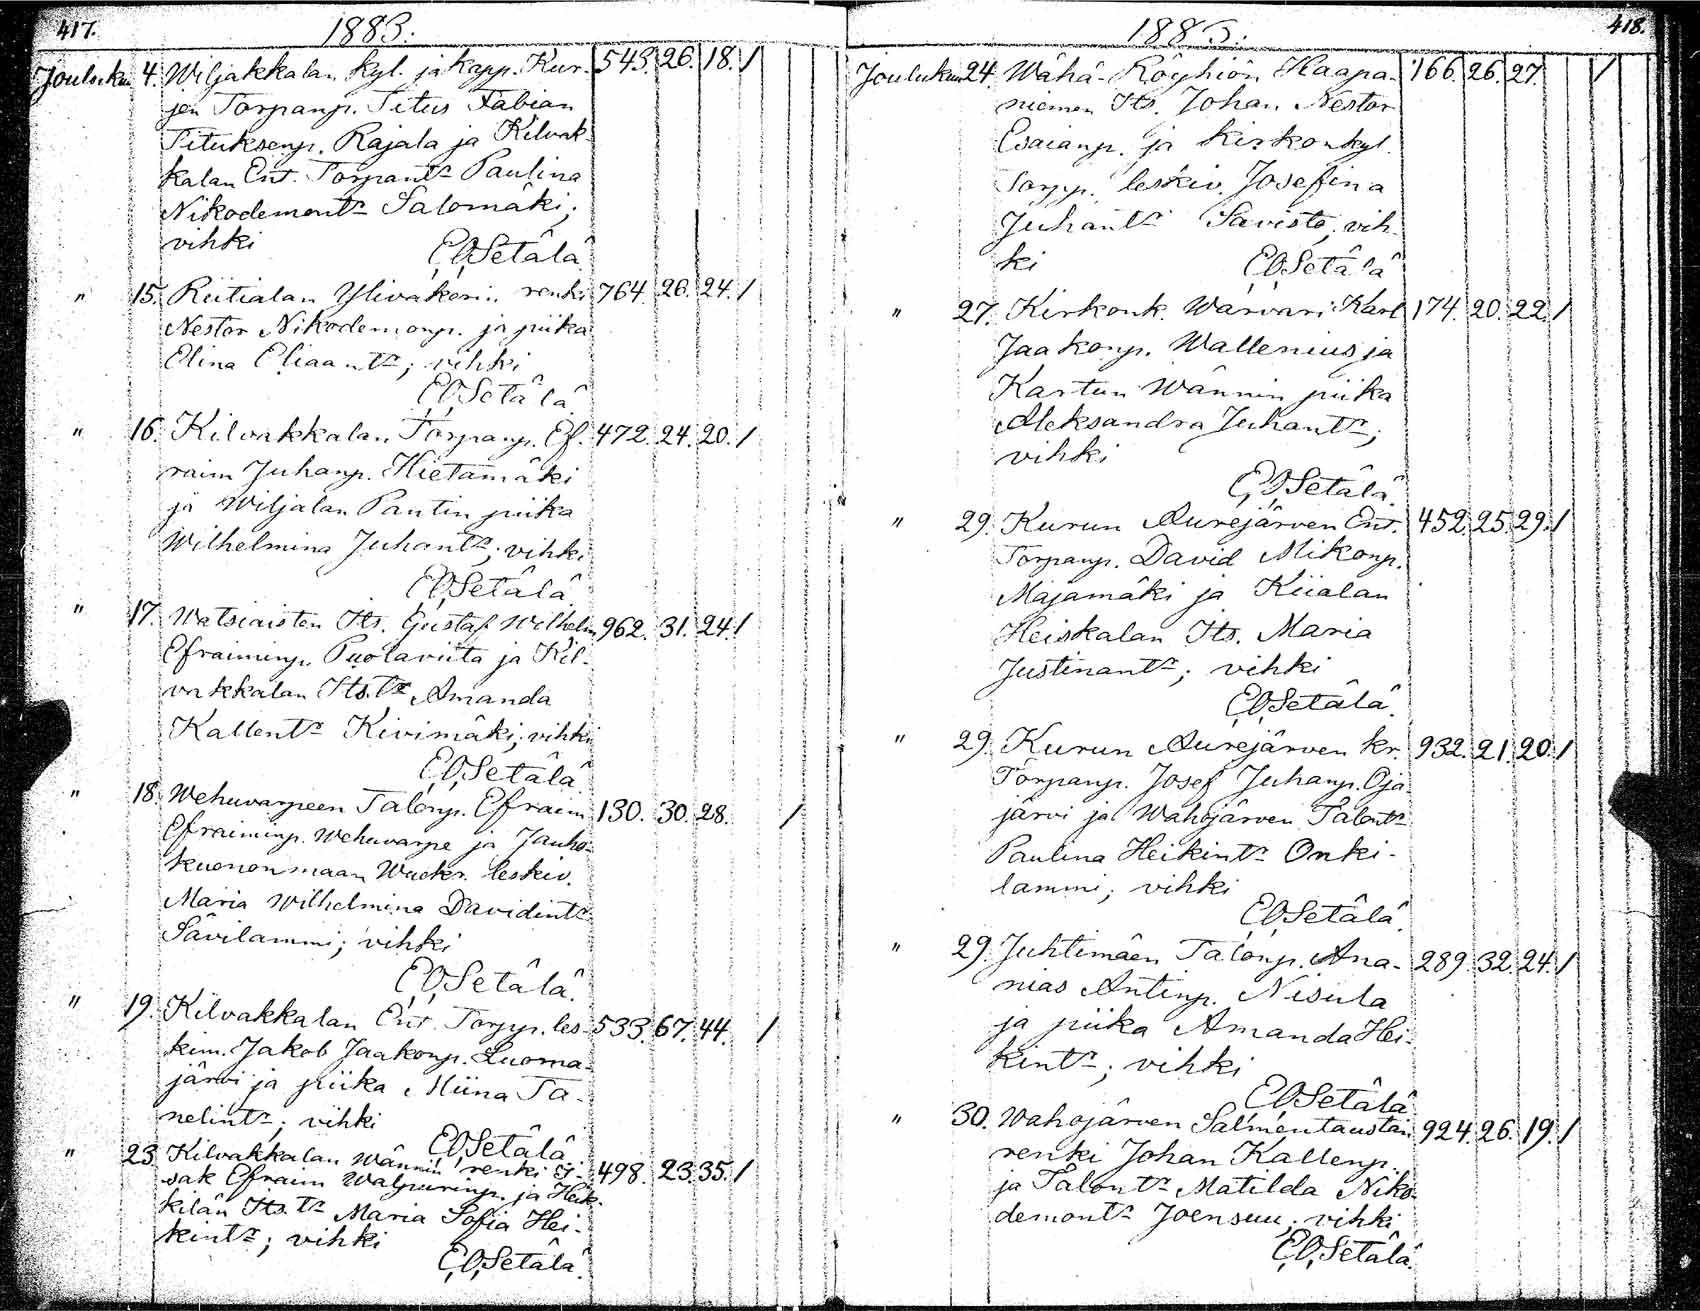 417.
1883.
Joulukuu 4. Wiljakkalan kyl. ja kapp. Kur- 543. 26. 18. /
jen Torpanp. Titus Fabian
Tituksenp. Rajala ja Kilvak-
kalan Ent. Torpantr Paulina
Nikodemontr Salomäki;
vihki
E,O,Setälä.
" 15. Riitialan Ylivakerin renki 764. 26. 24. /
Nestor Nikodemonp. ja piika
Elina Eliaantr; vihki
E,O,Setälä.
" 16. Kilvakkalan Torpanp. Ef- 472. 24. 20. /
raim Juhanp. Hietamäki
ja Wiljalan Pantin piika
Wilhelmina Juhantr; vihki
E,O,Setälä
" 17. Watsiaisten Its. Gustaf Wilhelm 962. 31. 24. /
Efraiminp. Puolaviita ja Kil-
vakkalan Its.tr Amanda
Kallentr Kivimäki; vihki
E,O,Setälä
" 18. Wehuvarpeen Talonp. Efraim 130. 30. 28. /
Efraiminp. Wehuvarpe ja Jauho-
kuononmaan Wuokr. leskiv.
Maria Wilhelmina Davidintr
Savilammi; vihki
E,O,Setälä.
" 19. Kilvakkalan Ent. Torpp. les- 533. 67. 44. /
kim. Jakob Jaakonp. Luoma-
järvi ja piika Miina Ta-
nelintr; vihki
E,O,Setälä
" 23. Kilvakkalan Wännin renki I- 498. 23. 35. /
sak Efraim Walpurinp. ja Heik-
kilän Its.tr Maria Sofia Hei-
kintr; vihki
E,O,Setälä.
418.
1883.
Joulukuu 24. Wähä-Röyhiön Haapa- 166. 26. 27. /
niemen Its. Johan Nestor
Esaianp. ja kirkonkyl.
Torpp. leskiv. Josefina
Juhantr Savisto; vih-
ki
E,O,Setälä
" 27. Kirkonk. Wärvari Karl 174. 20. 22. /
Jaakonp. Wallenius ja
Kartun Wännin piika
Aleksandra Juhantr;
vihki
E,O,Setälä.
" 29. Kurun Aurejärven Ent. 452. 25. 29. /
Torpanp. David Mikonp.
Majamäki ja Kiialan
Heiskalan Its. Maria
Justinantr; vihki
E,O,Setälä.
" 29. Kurun Aurejärven kr. 932. 21. 20. /
Torpanp. Josef Juhanp. Oja-
järvi ja Wahojärven Talontr
Paulina Heikintr Onki-
lammi; vihki
E,O,Setälä.
" 29. Juhtimäen Talonp. Ana- 289. 32. 24. /
nias Antinp. Nisula
ja piika Amanda Hei-
kintr; vihki
E,O,Setälä
" 30. Wahojärven Salmentaustan 924. 26. 19. /
renki Johan Kallenp.
ja Talontr Matilda Niko-
demontr Joensuu; vihki
E,O,Setälä.